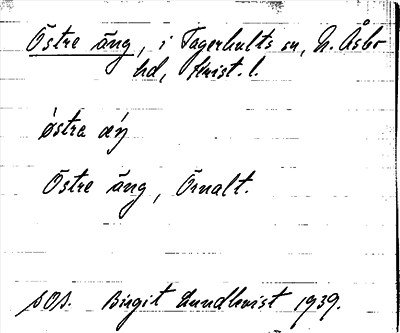 Östre äng, i Fagerhults sn, N. Åsbo
hd, Krist. l.
östra æŋ
Östre äng, Örnalt.
SOA. Birgit Lundkvist 1939.